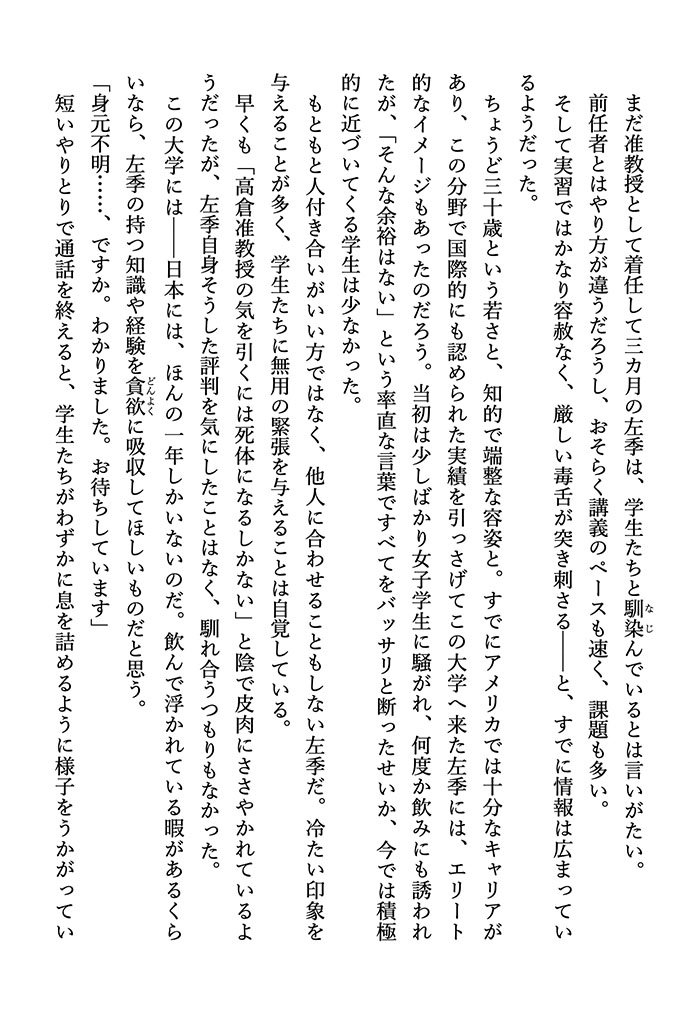 まだ准教授として着任して三カ月の左季は、学生たちと馴染んでいるとは言いがたい。
前任者とはやり方が違うだろうし、おそらく講義のペースも速く、課題も多い。
そして実習ではかなり容赦なく、厳しい毒舌が突き刺さる――と、すでに情報は広まってい
るようだった。
ちょうど三十歳という若さと、知的で端整な容姿と。すでにアメリカでは十分なキャリアが
あり、この分野で国際的にも認められた実績を引っさげてこの大学へ来た左季には、エリート
的なイメージもあったのだろう。当初は少しばかり女子学生に騒がれ、何度か飲みにも誘われ
たが、「そんな余裕はない」という率直な言葉ですべてをバッサリと断ったせいか、今では積極
的に近づいてくる学生は少なかった。
もともと人付き合いがいい方ではなく、他人に合わせることもしない左季だ。冷たい印象を
与えることが多く、学生たちに無用の緊張を与えることは自覚している。
早くも「高倉准教授の気を引くには死体になるしかない」と陰で皮肉にささやかれているよ
うだったが、左季自身そうした評判を気にしたことはなく、馴れ合うつもりもなかった。
この大学には――日本には、ほんの一年しかいないのだ。飲んで浮かれている暇があるくら
いなら、左季の持つ知識や経験を貪欲に吸収してほしいものだと思う。
「身元不明……、ですか。わかりました。お待ちしています」
短いやりとりで通話を終えると、学生たちがわずかに息を詰めるように様子をうかがってい